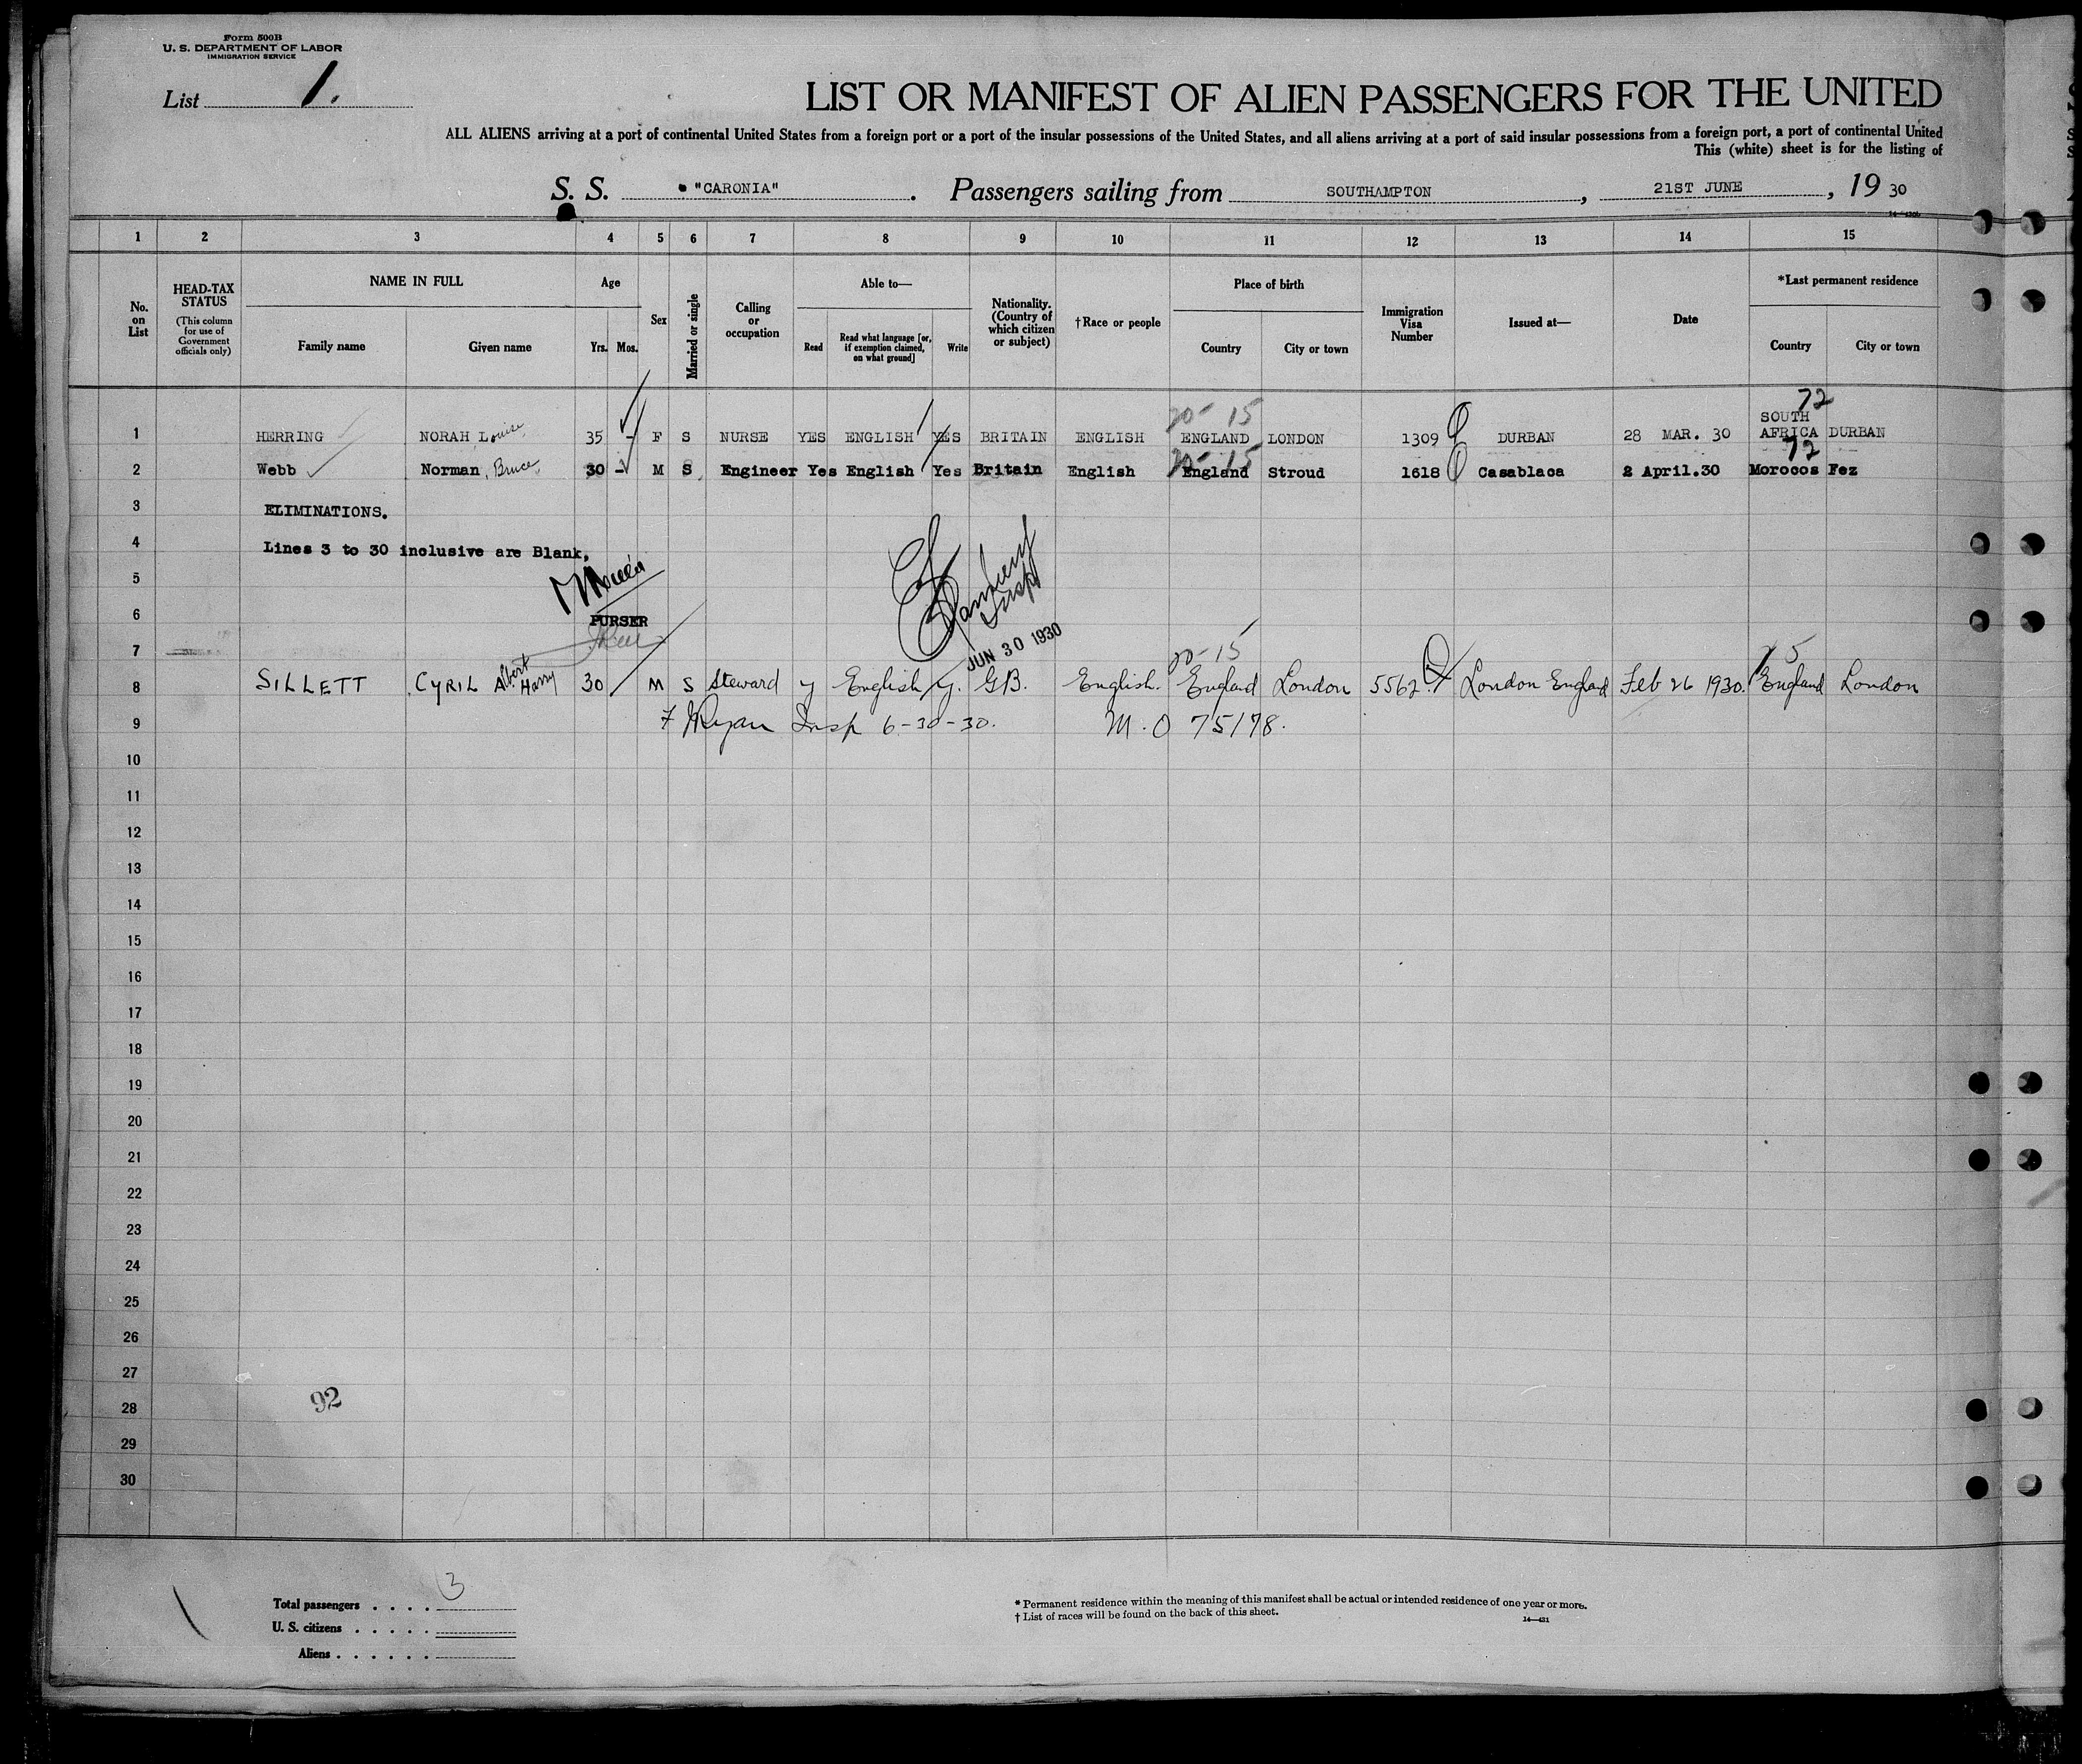 Form 500B
U. S. DEPARTMENT OF LABOR
IMMIGRATION SERVICE
List 1.
LIST OR MANIFEST OF ALIEN PASSENGERS FOR THE UNITED
ALL ALIENS arriving at a port of continental United States from a foreign port or a port of the insular possessions of the United States, and all aliens arriving at a port of said insular possessions from a foreign port, a port of continental United
This (white) sheet is for the listing of
S. S. "CARONIA". Passengers sailing from SOUTHAMPTON, 21ST JUNE, 19 30
1 2 3 4 5 6 7 8 9 10 11 12 13 14 15
No. on List
HEAD-TAX STATUS (This column for use of Government officials only)
NAME IN FULL
Family name Given name
Age
Yrs. Mos.
Sex
Married or single
Calling or occupation
Able to—
Read
Read what language [or, if exemption claimed, on what ground]
Write
Nationality. (Country of which citizen or subject)
†Race or people
Place of birth
Country City or town
Immigration Visa Number
Issued at—
Date
*Last permanent residence
Country City or town
20-15 72
1 HERRING NORAH Louise 35 - F S NURSE YES ENGLISH YES BRITAIN ENGLISH ENGLAND LONDON 1309 DURBAN 28 MAR. 30 SOUTH AFRICA DURBAN
20-15 72
2 Webb Norman, Bruce 30 - M S Engineer Yes English Yes Britain English England Stroud 1618 Casablaca 2 April.30 Morocos Fez
3 ELIMINATIONS.
4 Lines 3 to 30 inclusive are Blank,
5
6 PURSER
7 JUN 30 1930
Insp
20-15 15
8 SILLETT CYRIL Albert Harry 30 M S Steward y English y. G.B. English. England London 5562 London England Feb 26 1930. England London
9 F J Ryan Insp 6-30-30. M.O 75178.
10
11
12
13
14
15
16
17
18
19
20
21
22
23
24
25
26
27
28 92
29
30
Total passengers . . . . 3
U. S. citizens . . . . .
Aliens . . . . . .
* Permanent residence within the meaning of this manifest shall be actual or intended residence of one year or more.
† List of races will be found on the back of this sheet.
14—431